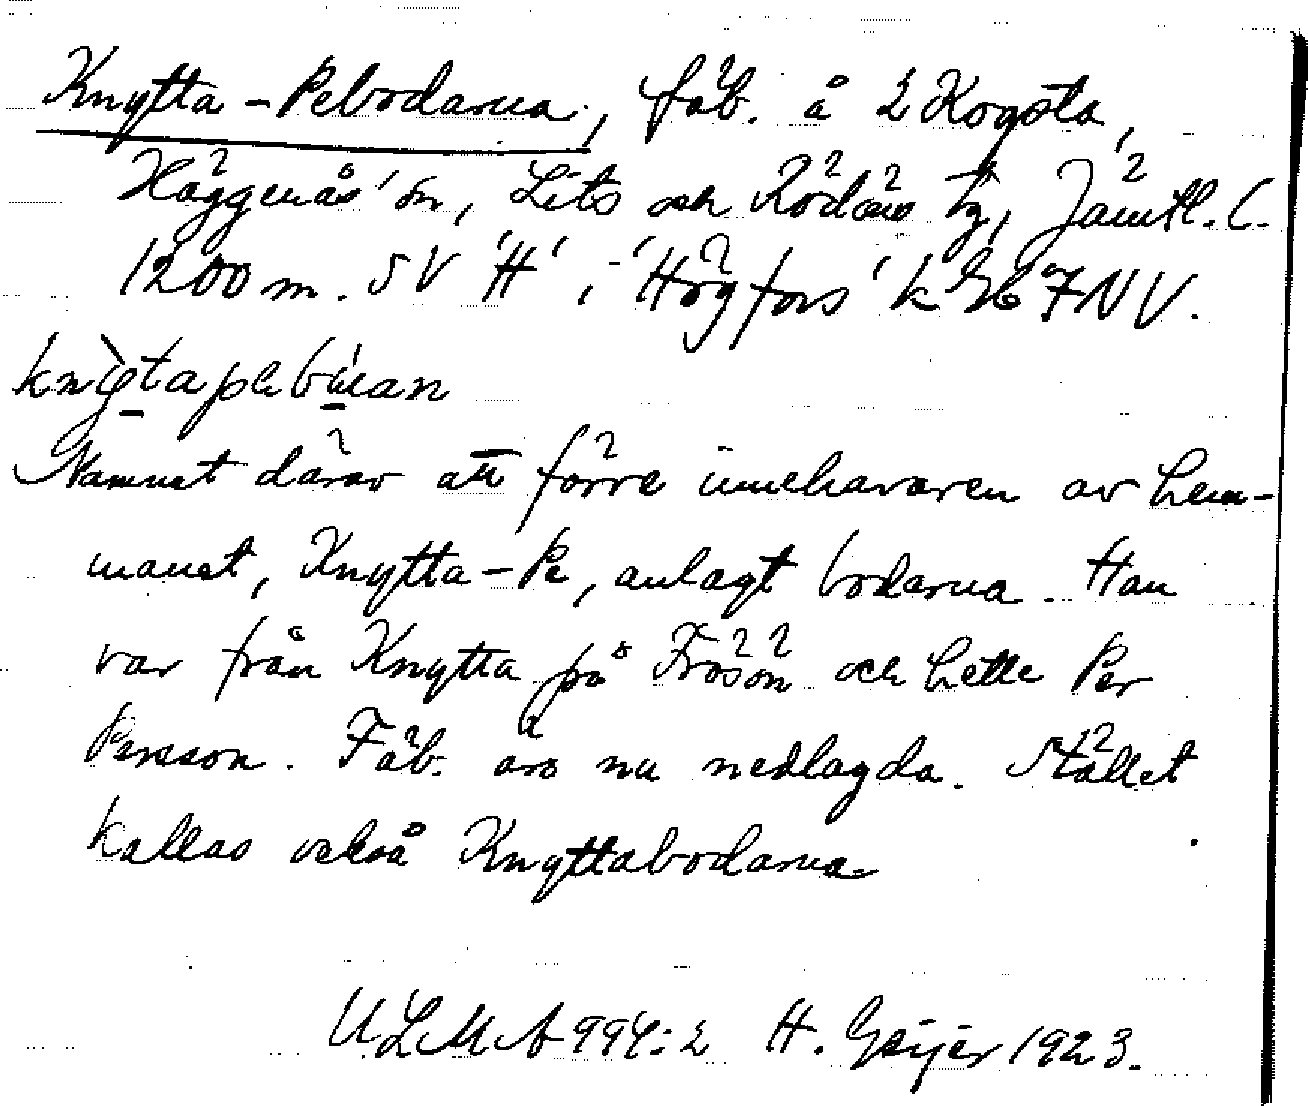 Knytta-Pebodarna, fäb. å 2 Kogsta,
Häggenås sn, Lits och Rödöns tg, Jämtl. l.
1200 m. SV 'H' i 'Högfors' k 7 NV.
Namnet därav att förre innehavaren av hem-
manet, Knytta-Pe, anlagt bodarna. Han
var från Knytta på Frösön och hette Per
Persson. Fäb. äro nu nedlagda. Stället
kallas också Knyttabodarna
ULMA 994:2 H. Geijer 1923.